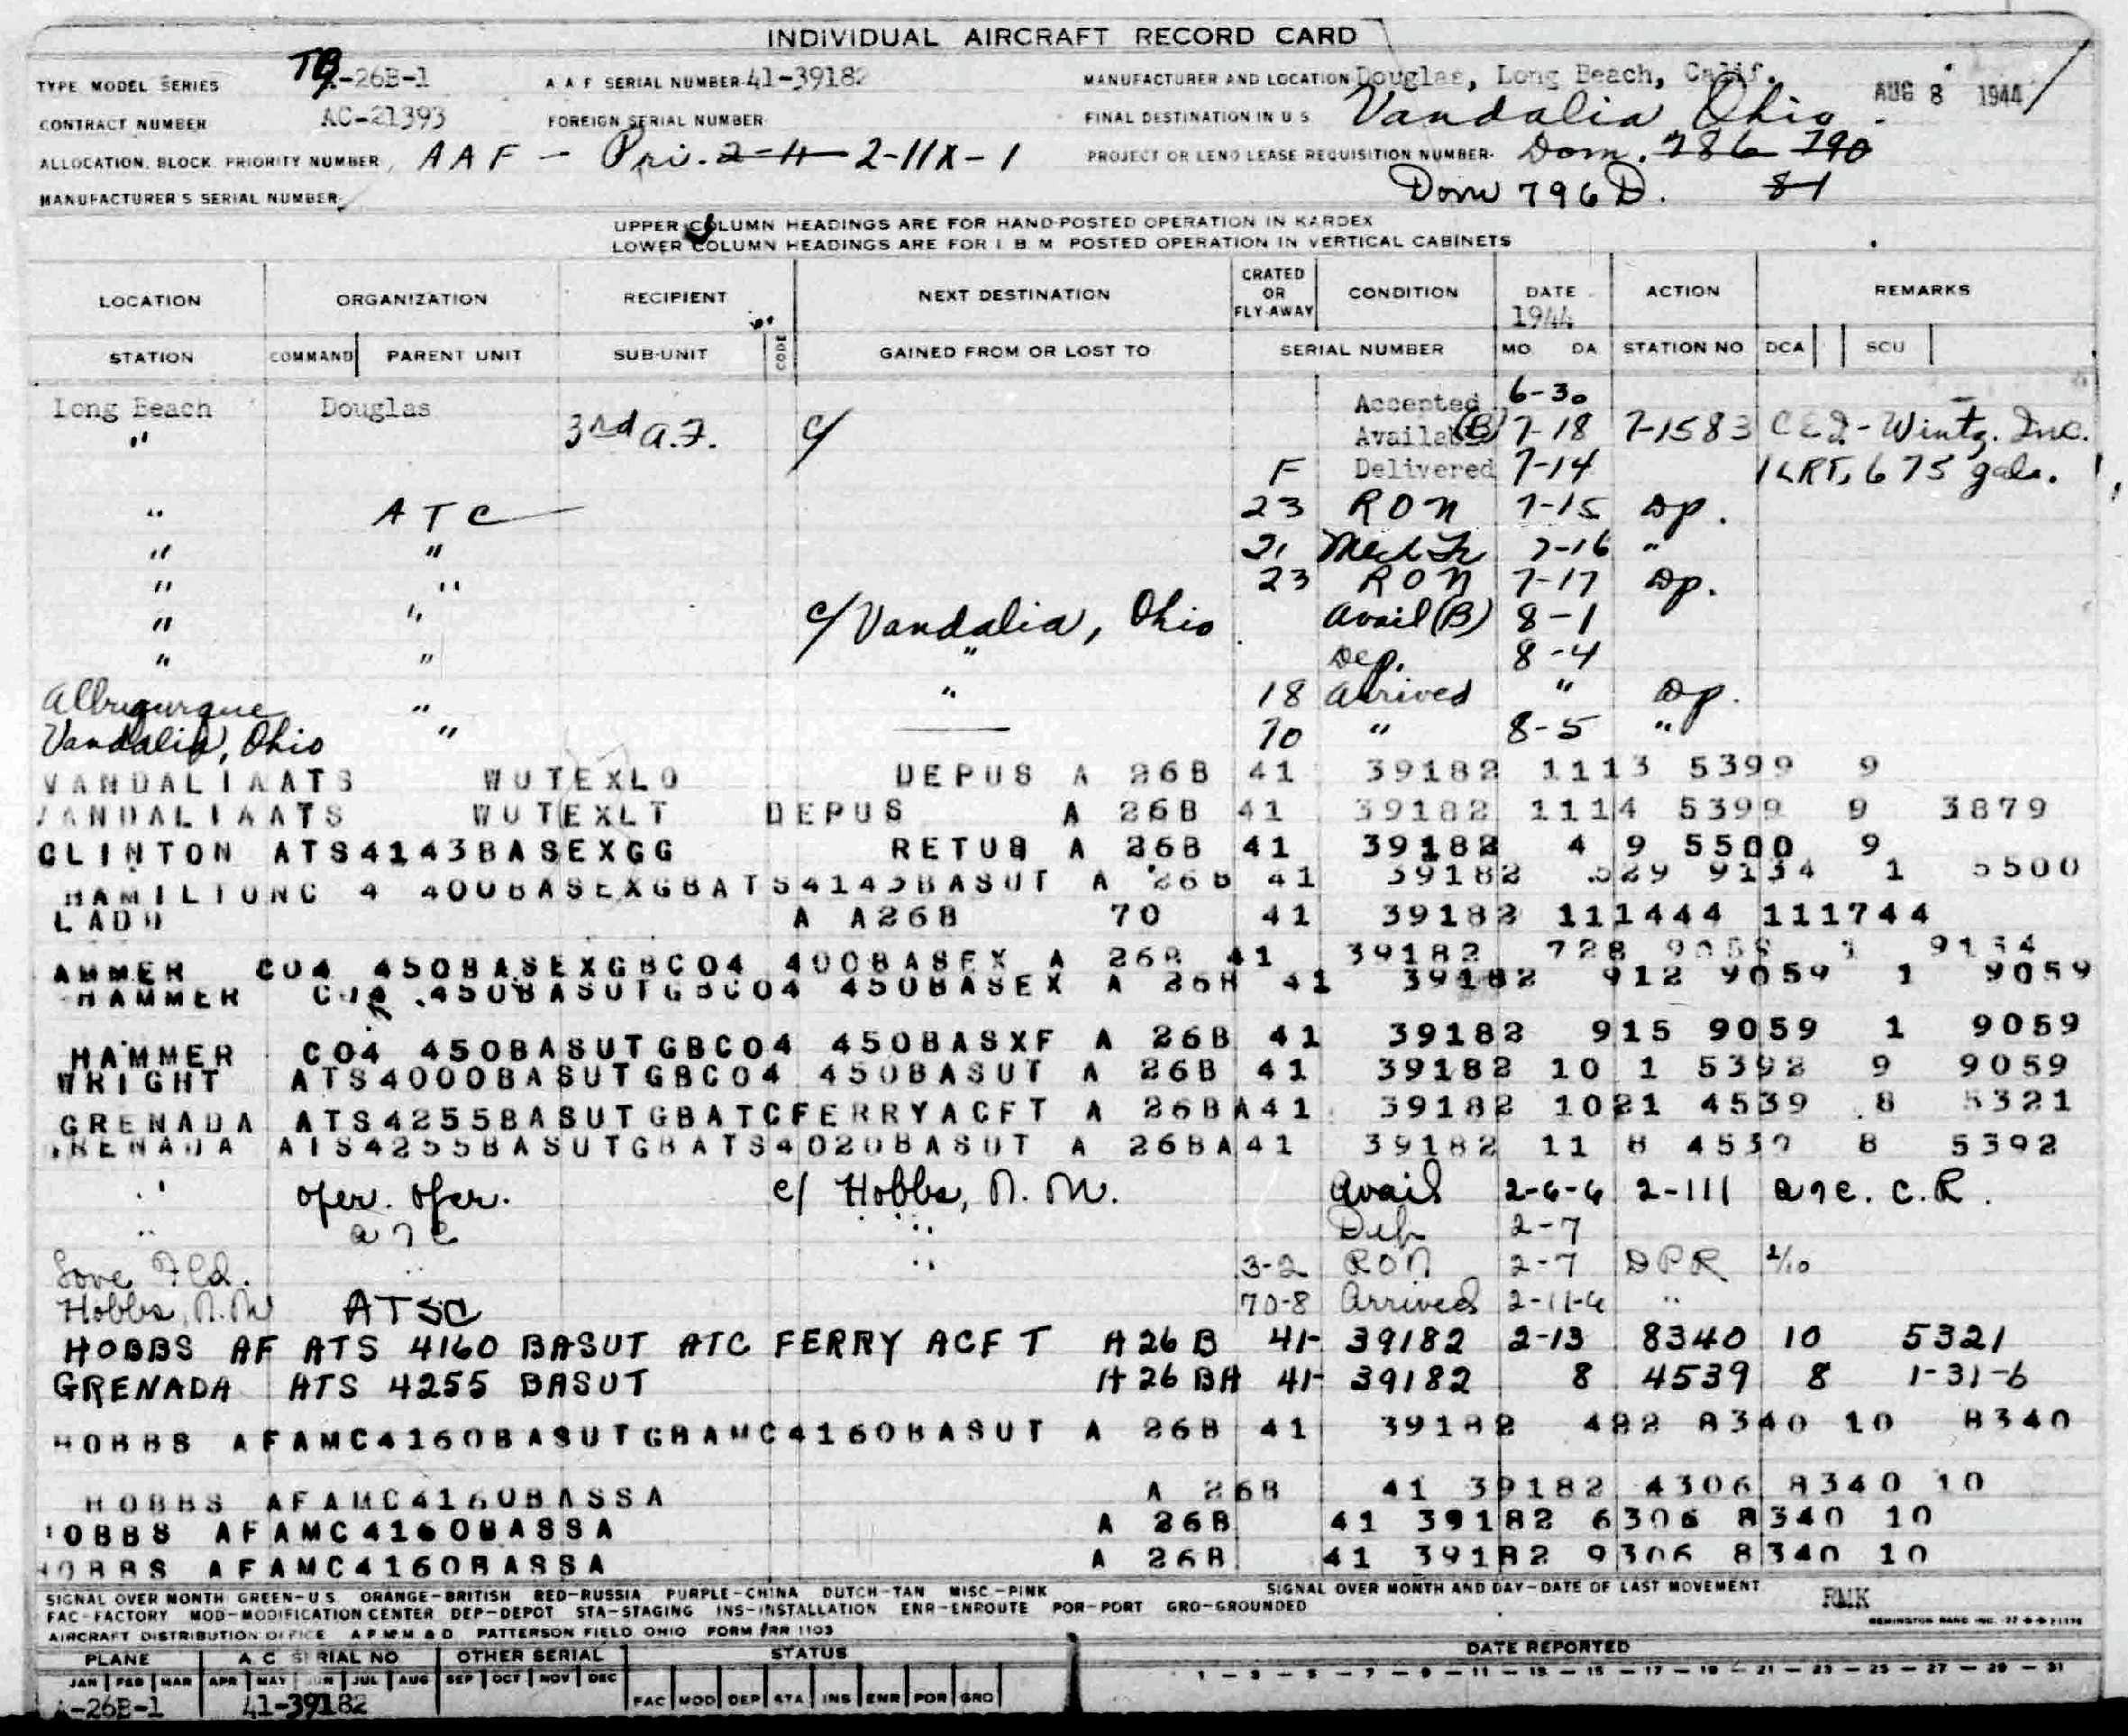 INDIVIDUAL AIRCRAFT RECORD CARD
TYPE MODEL SERIES TB-26B-1 A A F SERIAL NUMBER 41-39182 MANUFACTURER AND LOCATION Douglas, Long Beach, Calif. AUG 8 1944
CONTRACT NUMBER AC-21393 FOREIGN SERIAL NUMBER FINAL DESTINATION IN U S Vandalia Ohio.
ALLOCATION, BLOCK, PRIORITY NUMBER, AAF - Pri. 2-11 2-11X-1 PROJECT OR LEND LEASE REQUISITION NUMBER- Dom. 786 790
MANUFACTURER'S SERIAL NUMBER Dom 796D. 81
UPPER COLUMN HEADINGS ARE FOR HAND-POSTED OPERATION IN KARDEX
LOWER COLUMN HEADINGS ARE FOR I B M POSTED OPERATION IN VERTICAL CABINETS
LOCATION ORGANIZATION RECIPIENT NEXT DESTINATION CRATED OR FLY-AWAY CONDITION DATE 1944 ACTION REMARKS
STATION COMMAND PARENT UNIT SUB-UNIT CODE GAINED FROM OR LOST TO SERIAL NUMBER MO DA STATION NO DCA SCU
Long Beach Douglas Accepted 6-30
" 3rd A.F. c/ Available (B) 7-18 7-1583 CED-Wintz. Inc.
F Delivered 7-14 675 gals.
" ATC 23 RON 7-15 Dp.
" " 21 7-16 "
" " 23 RON 7-17 Dp.
" " c/ Vandalia, Ohio Avail (B) 8-1
" " " Dep. 8-4
Albuqurque " " 18 Arrived " Dp.
Vandalia, Ohio " 70 " 8-5 "
VANDALIAATS WUTEXLO DEPUS A 26B 41 39182 1113 5399 9
VANDALIAATS WUTEXLT DEPUS A 26B 41 39182 1114 5399 9 3879
CLINTON ATS4143BASEXGG RETUS A 26B 41 39182 4 9 5500 9
HAMILTONC 4 400BASEXGBATS4143BASUT A 26B 41 39182 529 9134 1 5500
LADD A A26B 70 41 39182 111444 111744
AMMER C04 450BASEXGBC04 400BASEX A 26B 41 39182 728 9059 1 9134
HAMMER C04 450BASUTGBC04 450BASEX A 26B 41 39182 912 9059 1 9059
HAMMER C04 450BASUTGBC04 450BASXF A 26B 41 39182 915 9059 1 9059
WRIGHT ATS4000BASUTGBC04 450BASUT A 26B 41 39182 10 1 5392 9 9059
GRENADA ATS4255BASUTGBATCFERRYACFT A 26BA41 39182 1021 4539 8 5321
GRENADA ATS4255BASUTGBATS4020BASUT A 26BA41 39182 11 8 4539 8 5392
" Oper. Oper. c/ Hobbs, N. M. Avail 2-6-6 2-111 ATC. C.R.
" ATC " Dep 2-7
Love Fld. " " 3-2 RON 2-7 DPR 2/10
Hobbs, N.M ATSC 70-8 Arrived 2-11-6 "
HOBBS AF ATS 4160 BASUT ATC FERRY ACF T A 26 B 41- 39182 2-13 8340 10 5321
GRENADA ATS 4255 BASUT A 26 BA 41- 39182 8 4539 8 1-31-6
HOBBS AFAMC4160BASUTGBAMC4160BASUT A 26B 41 39182 422 8340 10 8340
HOBBS AFAMC4160BASSA A 26B 41 39182 4306 8340 10
OBBS AFAMC4160BASSA A 26B 41 39182 6306 8340 10
HOBBS AFAMC4160BASSA A 26B 41 39182 9306 8340 10
SIGNAL OVER MONTH GREEN-U.S. ORANGE-BRITISH RED-RUSSIA PURPLE-CHINA DUTCH-TAN MISC.-PINK SIGNAL OVER MONTH AND DAY-DATE OF LAST MOVEMENT
FAC-FACTORY MOD-MODIFICATION CENTER DEP-DEPOT STA-STAGING INS-INSTALLATION ENR-ENROUTE POR-PORT GRO-GROUNDED RMK
AIRCRAFT DISTRIBUTION OFFICE A.F.M.M & D. PATTERSON FIELD, OHIO FORM #RR 1103 REMINGTON RAND INC.
PLANE A C SERIAL NO OTHER SERIAL STATUS DATE REPORTED
JAN FEB MAR APR MAY JUN JUL AUG SEP OCT NOV DEC FAC MOD DEP STA INS ENR POR GRO 1 - 3 - 5 - 7 - 9 - 11 - 13 - 15 - 17 - 19 - 21 - 23 - 25 - 27 - 29 - 31
A-26B-1 41-39182